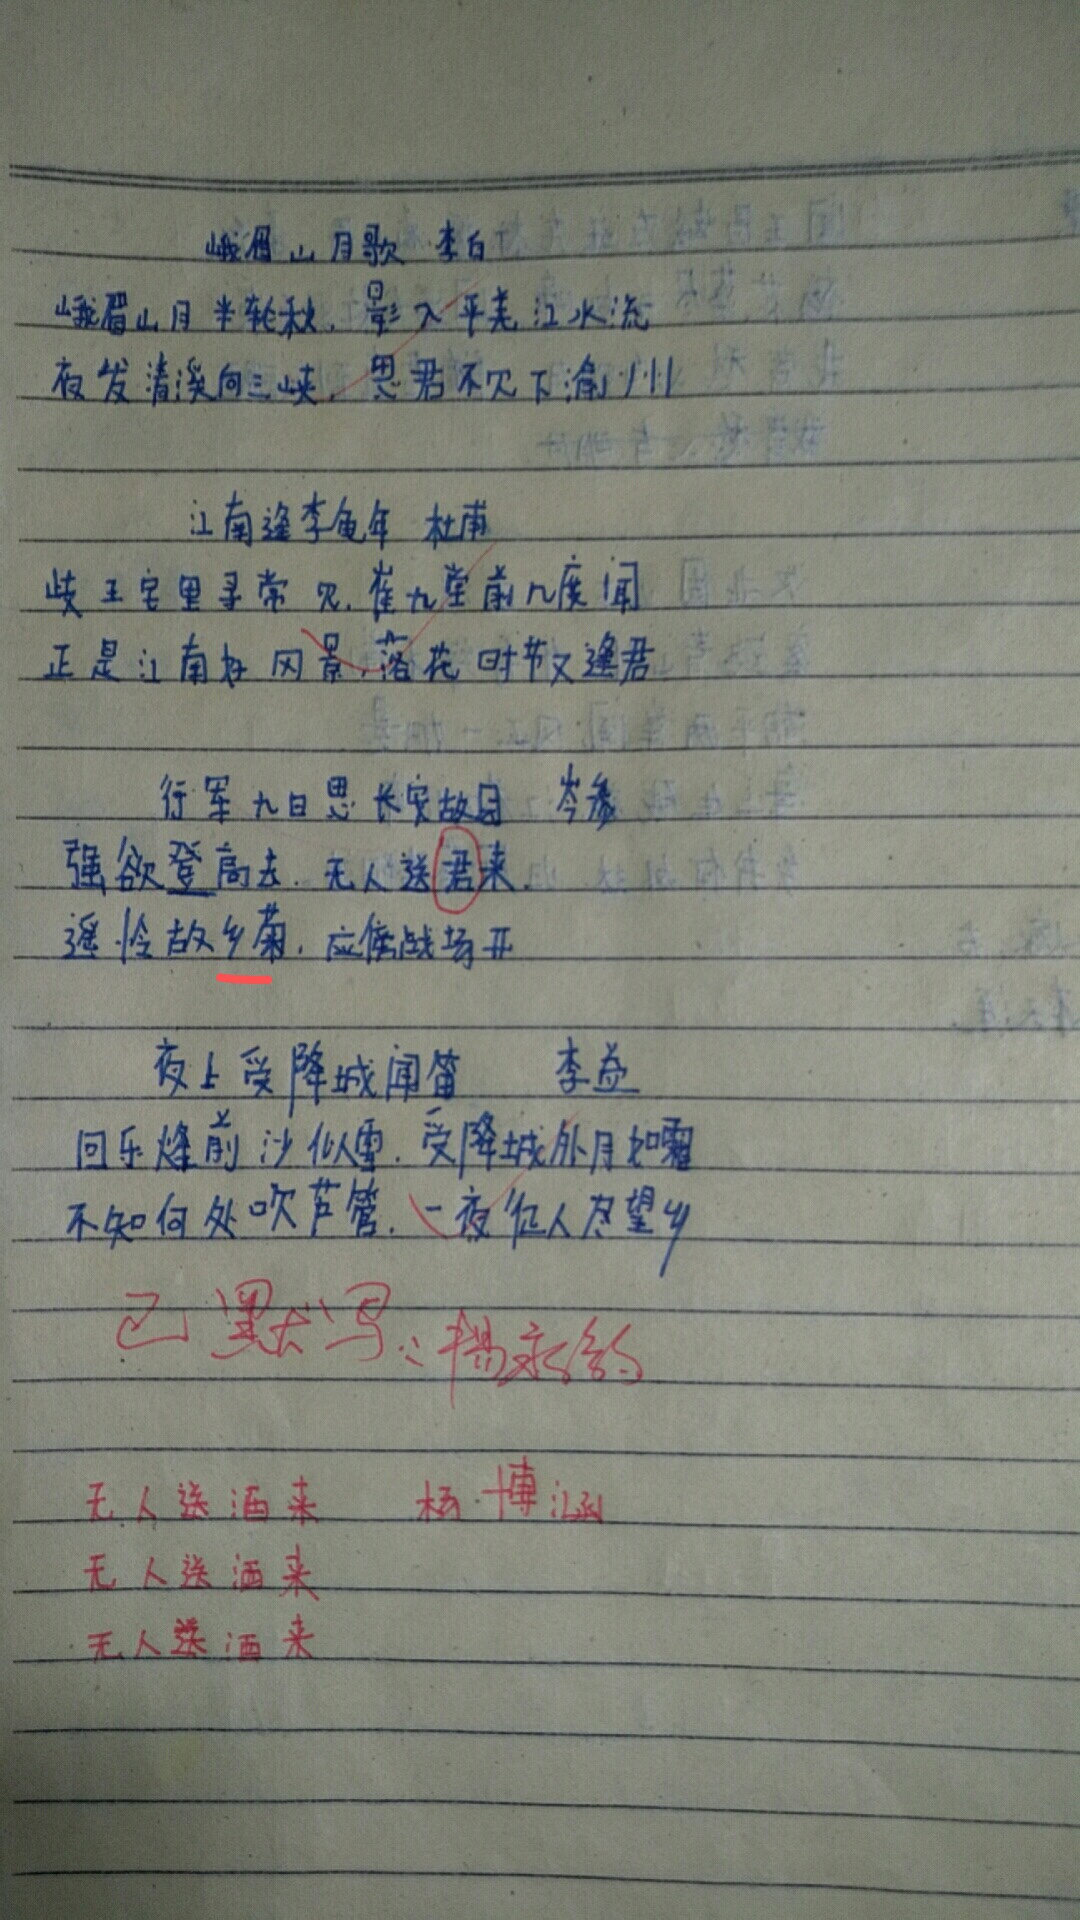 峨眉山月歌 李白
峨眉山月半轮秋，影入平羌江水流
夜发清溪向三峡，思君不见下渝州
江南逢李龟年 杜甫
岐王宅里寻常见，崔九堂前几度闻
正是江南好风景，落花时节又逢君
行军九日思长安故园 岑参
强欲登高去，无人送君来，
遥怜故乡菊，应傍战场开
夜上受降城闻笛 李益
回乐烽前沙似雪，受降城外月如霜
不知何处吹芦管，一夜征人尽望乡
已默写：杨
无人送酒来 杨博涵
无人送酒来
无人送酒来